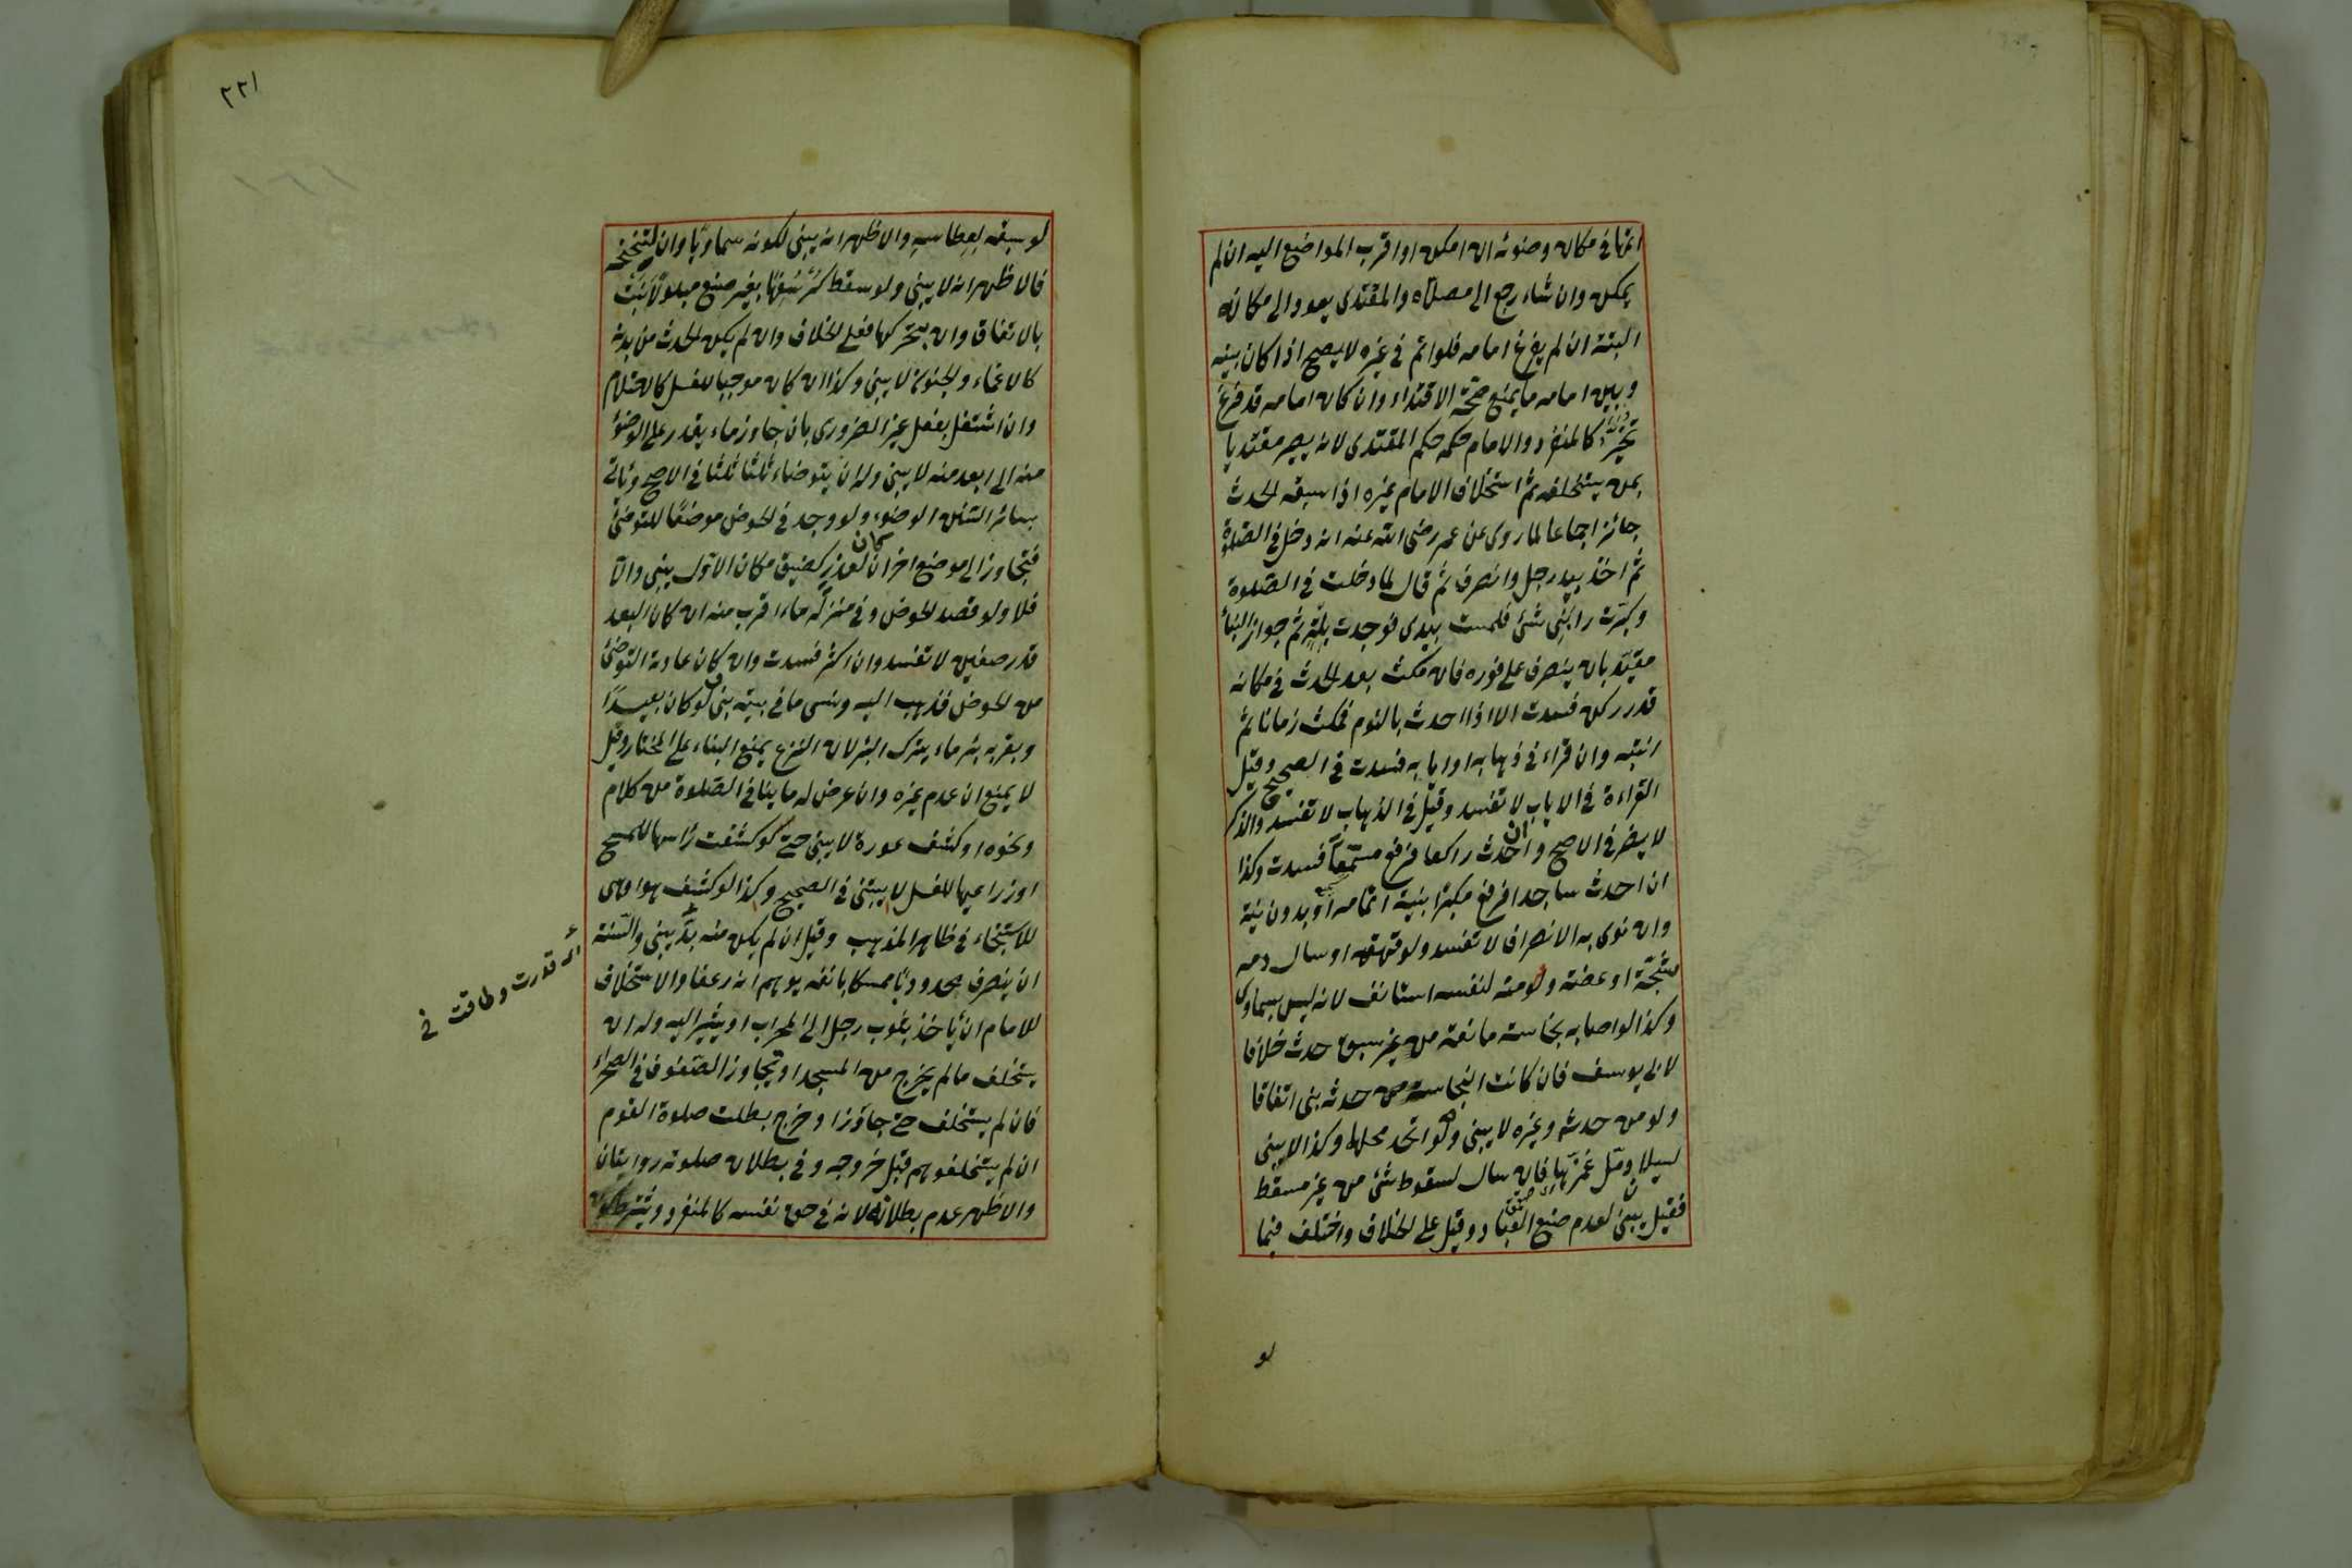 اتمها في مكان وضوئه ان امكن او اقرب المواضع اليه ان لم
يمكن وان شاء رجع الى مصلاه والمقتدى يعود الى مكانه
البتة ان لم يفرغ امامه فلو اتم في غيره لا يصح اذا كان بينه
وبين امامه ما يمنع صحة الاقتداء وان كان امامه قد فرغ
تخير كالمنفرد والامام حكمه حكم المقتدى لانه يصير مقتديا
بمن يستخلفه ثم استخلاف الامام غيره اذا سبقه الحدث
جائز اجماعا لما روى عن عمر رضى الله عنه انه دخل في الصلوة
ثم اخذ بيد رجل وانصرف ثم قال لما دخلت في الصلوة
وكبرت رابني شئ فلمست بيدى فوجدت بلة ثم جواز البناء
مقيد بان ينصرف على فوره فان مكث بعد الحدث في مكانه
قدر ركن فسدت الا اذا احدث بالنوم فمكث زمانا ثم
انتبه وان قراء في ذهابه او ايابه فسدت في الصحيح وقيل
القراءة في الاياب لا تفسد وقيل في الذهاب لا تفسد والذكر
لا يضر في الاصح وان احدث راكعا فرفع مسمعا فسدت وكذا
ان احدث ساجدا فرفع مكبرا بنية اتمامه او بدون نية
وان نوى به الانصراف لا تفسد ولو قهقه او سال دمه
بشجة او عضة ولو منه لنفسه استانف لانه ليس بسماوى
وكذا لو اصابه نجاسة مانعة من غير سبق حدث خلافا
لابى يوسف فان كانت النجاسة من حدثه بنى اتفاقا
ولو من حدثه وغيره لا يبنى ولو اتحد محلها وكذا لا يبنى
لسيلان دمل غمزها فان سال لسقوط شئ من غير مسقط
فقيل يبنى لعدم صنع العباد وقيل على الخلاف واختلف فيما
لو
٢٢١
لو سبقه لعطاسه والاظهر انه يبنى لكونه سماويا وان لتنحنحه
فالاظهر انه لا يبنى ولو سقط كرسفها بغير صنع مبلولا بنت
بالاتفاق وان بتحركها فعلى الخلاف وان لم يكن الحدث من بدنه
كالاغماء والجنون لا يبنى وكذا ان كان موجبا للغسل كالاحتلام
وان اشتغل بفعل غير الضرورى بان جاوز ماء يقدر على الوضوء
منه الى ابعد منه لا يبنى وله ان يتوضاء ثلثا ثلثا في الاصح وياتى
بسائر السنن الوضوء ولو وجد في الحوض موضعا للتوضئ
فتجاوز الى موضع اخر ان كان لعذر كضيق مكان الاول يبنى والا
فلا ولو قصد الحوض وفى منزله ماء اقرب منه ان كان البعد
قدر صفين لا تفسد وان اكثر فسدت وان كان عادته التوضئ
من الحوض فذهب اليه ونسى ما في بيته بنى ولو كان بعيدا
وبقربه بئر ماء يترك البئر لان النزع يمنع البناء على المختار وقيل
لا يمنع ان عدم غيره وان عرض له ما ينافى الصلوة من كلام
ونحوه او كشف عورة لا يبنى حتى لو كشفت راسها للمسح
او ذراعيها للغسل لا يبتنى في الصحيح وكذا لو كشف هو او هى
للاستنجاء في ظاهر المذهب وقيل ان لم يكن منه بد يبنى والسنة
ان ينصرف محدودبا ممسكا بانفه يوهم انه رعف والاستخلاف
للامام ان ياخذ بثوب رجل الى المحراب او يشير اليه وله ان
يستخلف ما لم يخرج من المسجد او تجاوز الصفوف في الصحراء
فان لم يستخلف حتى جاوز او خرج بطلت صلوة القوم
ان لم يستخلفوا هم قبل خروجه وفى بطلان صلوته روايتان
والاظهر عدم بطلانه لانه في حق نفسه كالمنفرد ويشترط كون
قدرت وطاقت في